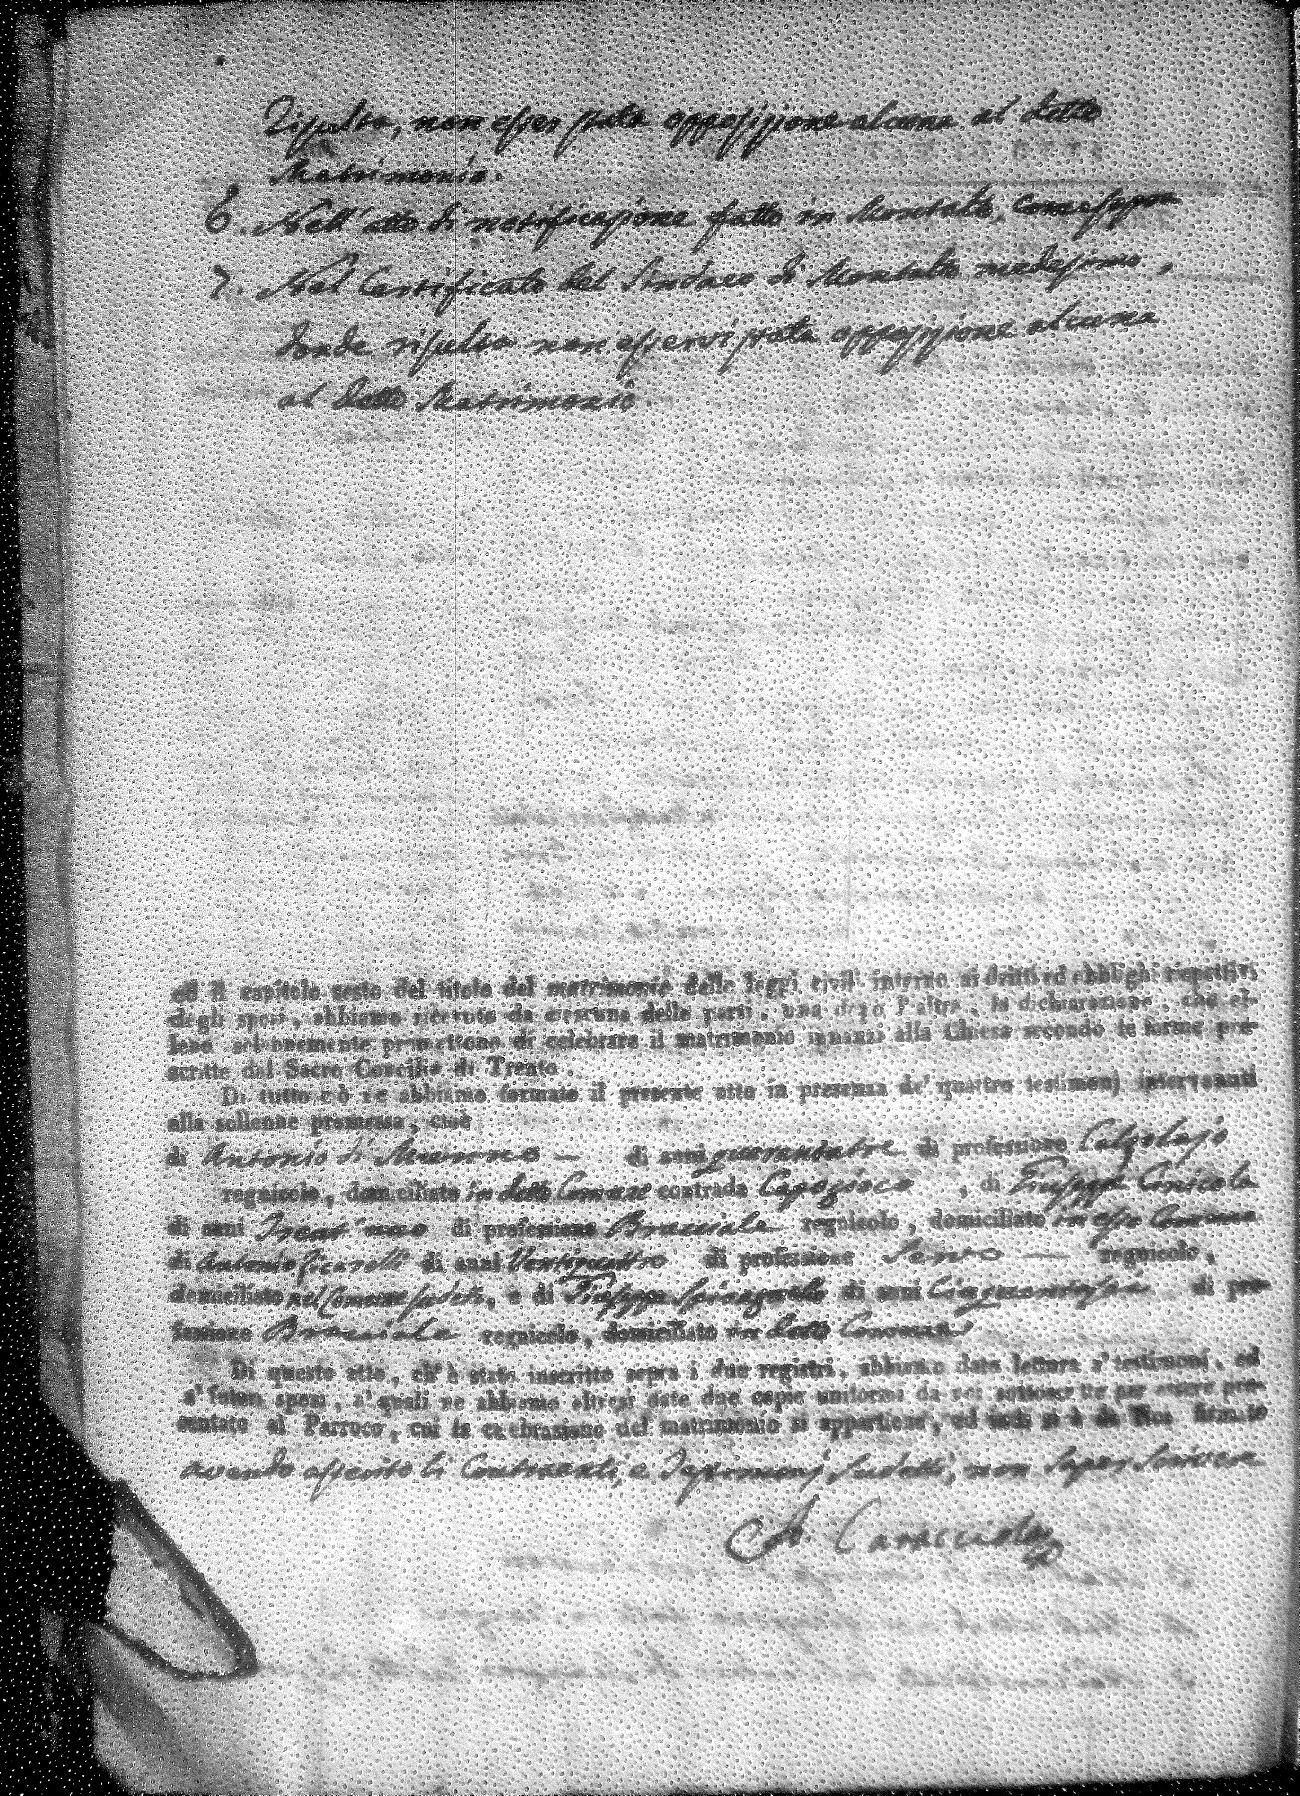 risulta, non esser stata opposizione alcuna al detto
Matrimonio.
6. Nell'atto di notificazione fatto in Montalto, come sopra
7. Nel Certificato del Sindaco di Montalto medesimo,
donde risulta non esservi stata opposizione alcuna
al detto Matrimonio
ed il capitolo sesto del titolo del matrimonio delle leggi civili intorno ai dritti ed obblighi rispettivi
degli sposi, abbiamo ricevuto da ciascuna delle parti, una dopo l'altra, la dichiarazione, che el-
leno solennemente promettono di celebrare il matrimonio innanzi alla Chiesa secondo le forme pre-
scritte dal Sacro Concilio di Trento.
Di tutto ciò ne abbiamo formato il presente atto in presenza de' quattro testimonj intervenuti
alla sollenne promessa, cioè
di Antonio di di anni quarantatre di professione Calzolajo
regnicolo, domiciliato in detto Comune contrada , di Giuseppe
di anni di professione Bracciale regnicolo, domiciliato in esso Comune
di Antonio di anni Ventiquattro di professione Servo — regnicolo,
domiciliato nel Comune sudetto, e di Giuseppe di anni di pro-
fessione Bracciale regnicolo, domiciliato in detto Comune
Di questo atto, ch'è stato inscritto sopra i due registri, abbiamo dato lettura a' testimonj, ed
a' futuri sposi, a' quali ne abbiamo altresì date due copie uniformi da noi sottoscritte per essere pre-
sentate al Parroco, cui la celebrazione del matrimonio si appartiene, ed indi si è da Noi firmato
avendo asserito li Contraenti, e Testimonj sudetti, non saper scrivere
Caracciolo